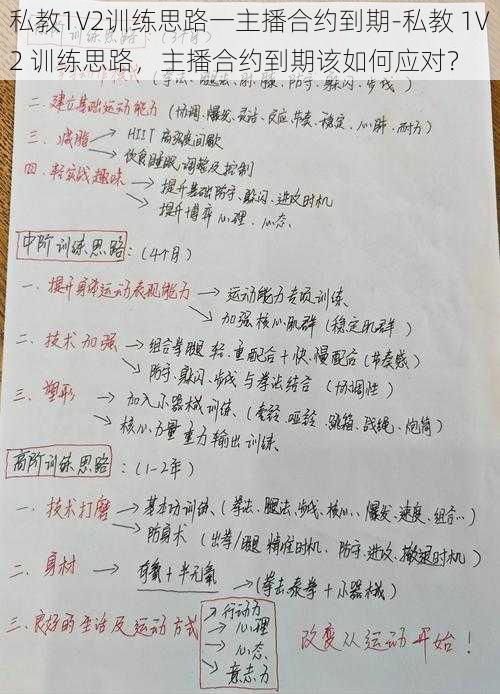 私教1V2训练思路一主播合约到期-私教 1V
2 训练思路，主播合约到期该如何应对？
二.建立基础运动能力（协调.爆发.灵活.反应.节奏.稳定.心肺.耐力）
三.减脂 → HIIT 高强度间歇
→ 饮食睡眠.调整及控制
四.轻实战趣味 → 提升基础防守.躲闪.进攻时机
→ 提升博弈心理.心态、
中阶训练思路：（4个月）
一.提升身体运动表现能力 → 运动能力专项训练、
→ 加强核心肌群（稳定肌群）
二.技术加强 → 组合拳腿 轻.重配合＋快.慢配合（节奏感）
→ 防守.躲闪.步伐与拳法结合（协调性）
三.塑形 → 加入小器械训练、（壶铃 哑铃 跳箱.战绳、炮筒）
→ 核心力量 重力输出训练、
高阶训练思路：（1-2年）
一.技术打磨 → 基本功训练、（拳法.腿法.步伐.核心、爆发.速度.组合…）
→ 防身术（出拳/腿 精准时机、防守.进攻.撤退时机）
二.身材 → 有氧＋半无氧 →（拳击泰拳＋小器械）
三.良好的生活及运动方式 → 行动力
→ 心理
→ 心态、
→ 意志力
改变从运动开始！